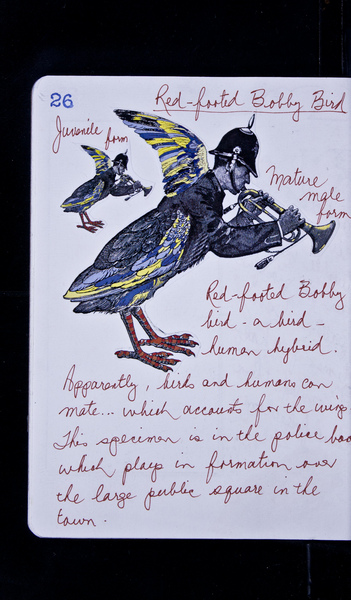 26
Red-footed Bobby Bird
Juvenile form
Mature
male
form
Red-footed Bobby
bird - a bird -
human hybrid.
Apparently, birds and humans can
mate... which accounts for the wings.
This specimen is in the police
which plays in formation over
the large public square in the
town.